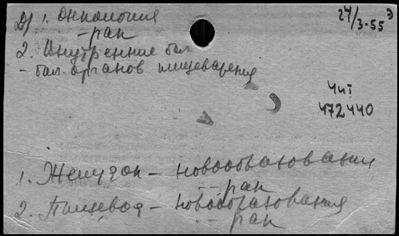 Д) 1. Онкология
- рак
2. Внутренние бол.
- бол. органов пищеварения
24/3-55 э
Чит
472440
1. Желудок - новообразования
-- рак
2. Пищевод - новообразования
-- рак